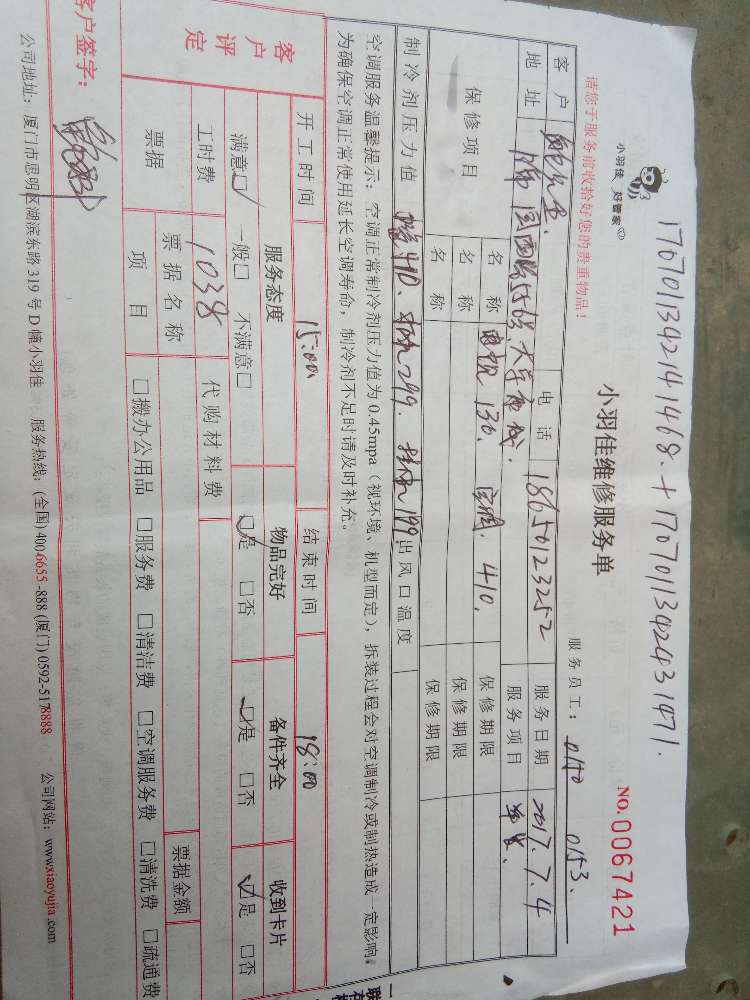 17070113421411468.+17070113424311471.
小羽佳 好管家
小羽佳维修服务单
NO.0067421
请您于服务前收拾好您的贵重物品!
服务员工: 0150 0153.
客户 电话 18650123252 服务日期 2017.7.4
地址 服务项目
保修项目 名称 130. 410. 保修期限
名称 保修期限
名称 保修期限
制冷剂压力值 410. 299. 199 出风口温度
空调服务温馨提示: 空调正常制冷剂压力值为0.45mpa(视环境、机型而定), 拆装过程会对空调制冷或制热造成一定影响。
为确保空调正常使用延长空调寿命, 制冷剂不足时请及时补充。
开工时间 15:00 结束时间 18:00
客户评定 服务态度 物品完好 备件齐全 收到卡片
满意☑ 一般□ 不满意□ ☑是 □否 ☑是 □否 ☑是 □否
工时费 1038 代购材料费
票据 票据名称 票据金额
项目 □搬办公用品 □服务费 □清洁费 □空调服务费 □清洗费 □疏通费
客户签字:
公司地址: 厦门市思明区湖滨东路319号D幢小羽佳 服务热线: (全国)400-6655-888 (厦门)0592-5178888 公司网站: www.xiaoyujia.com